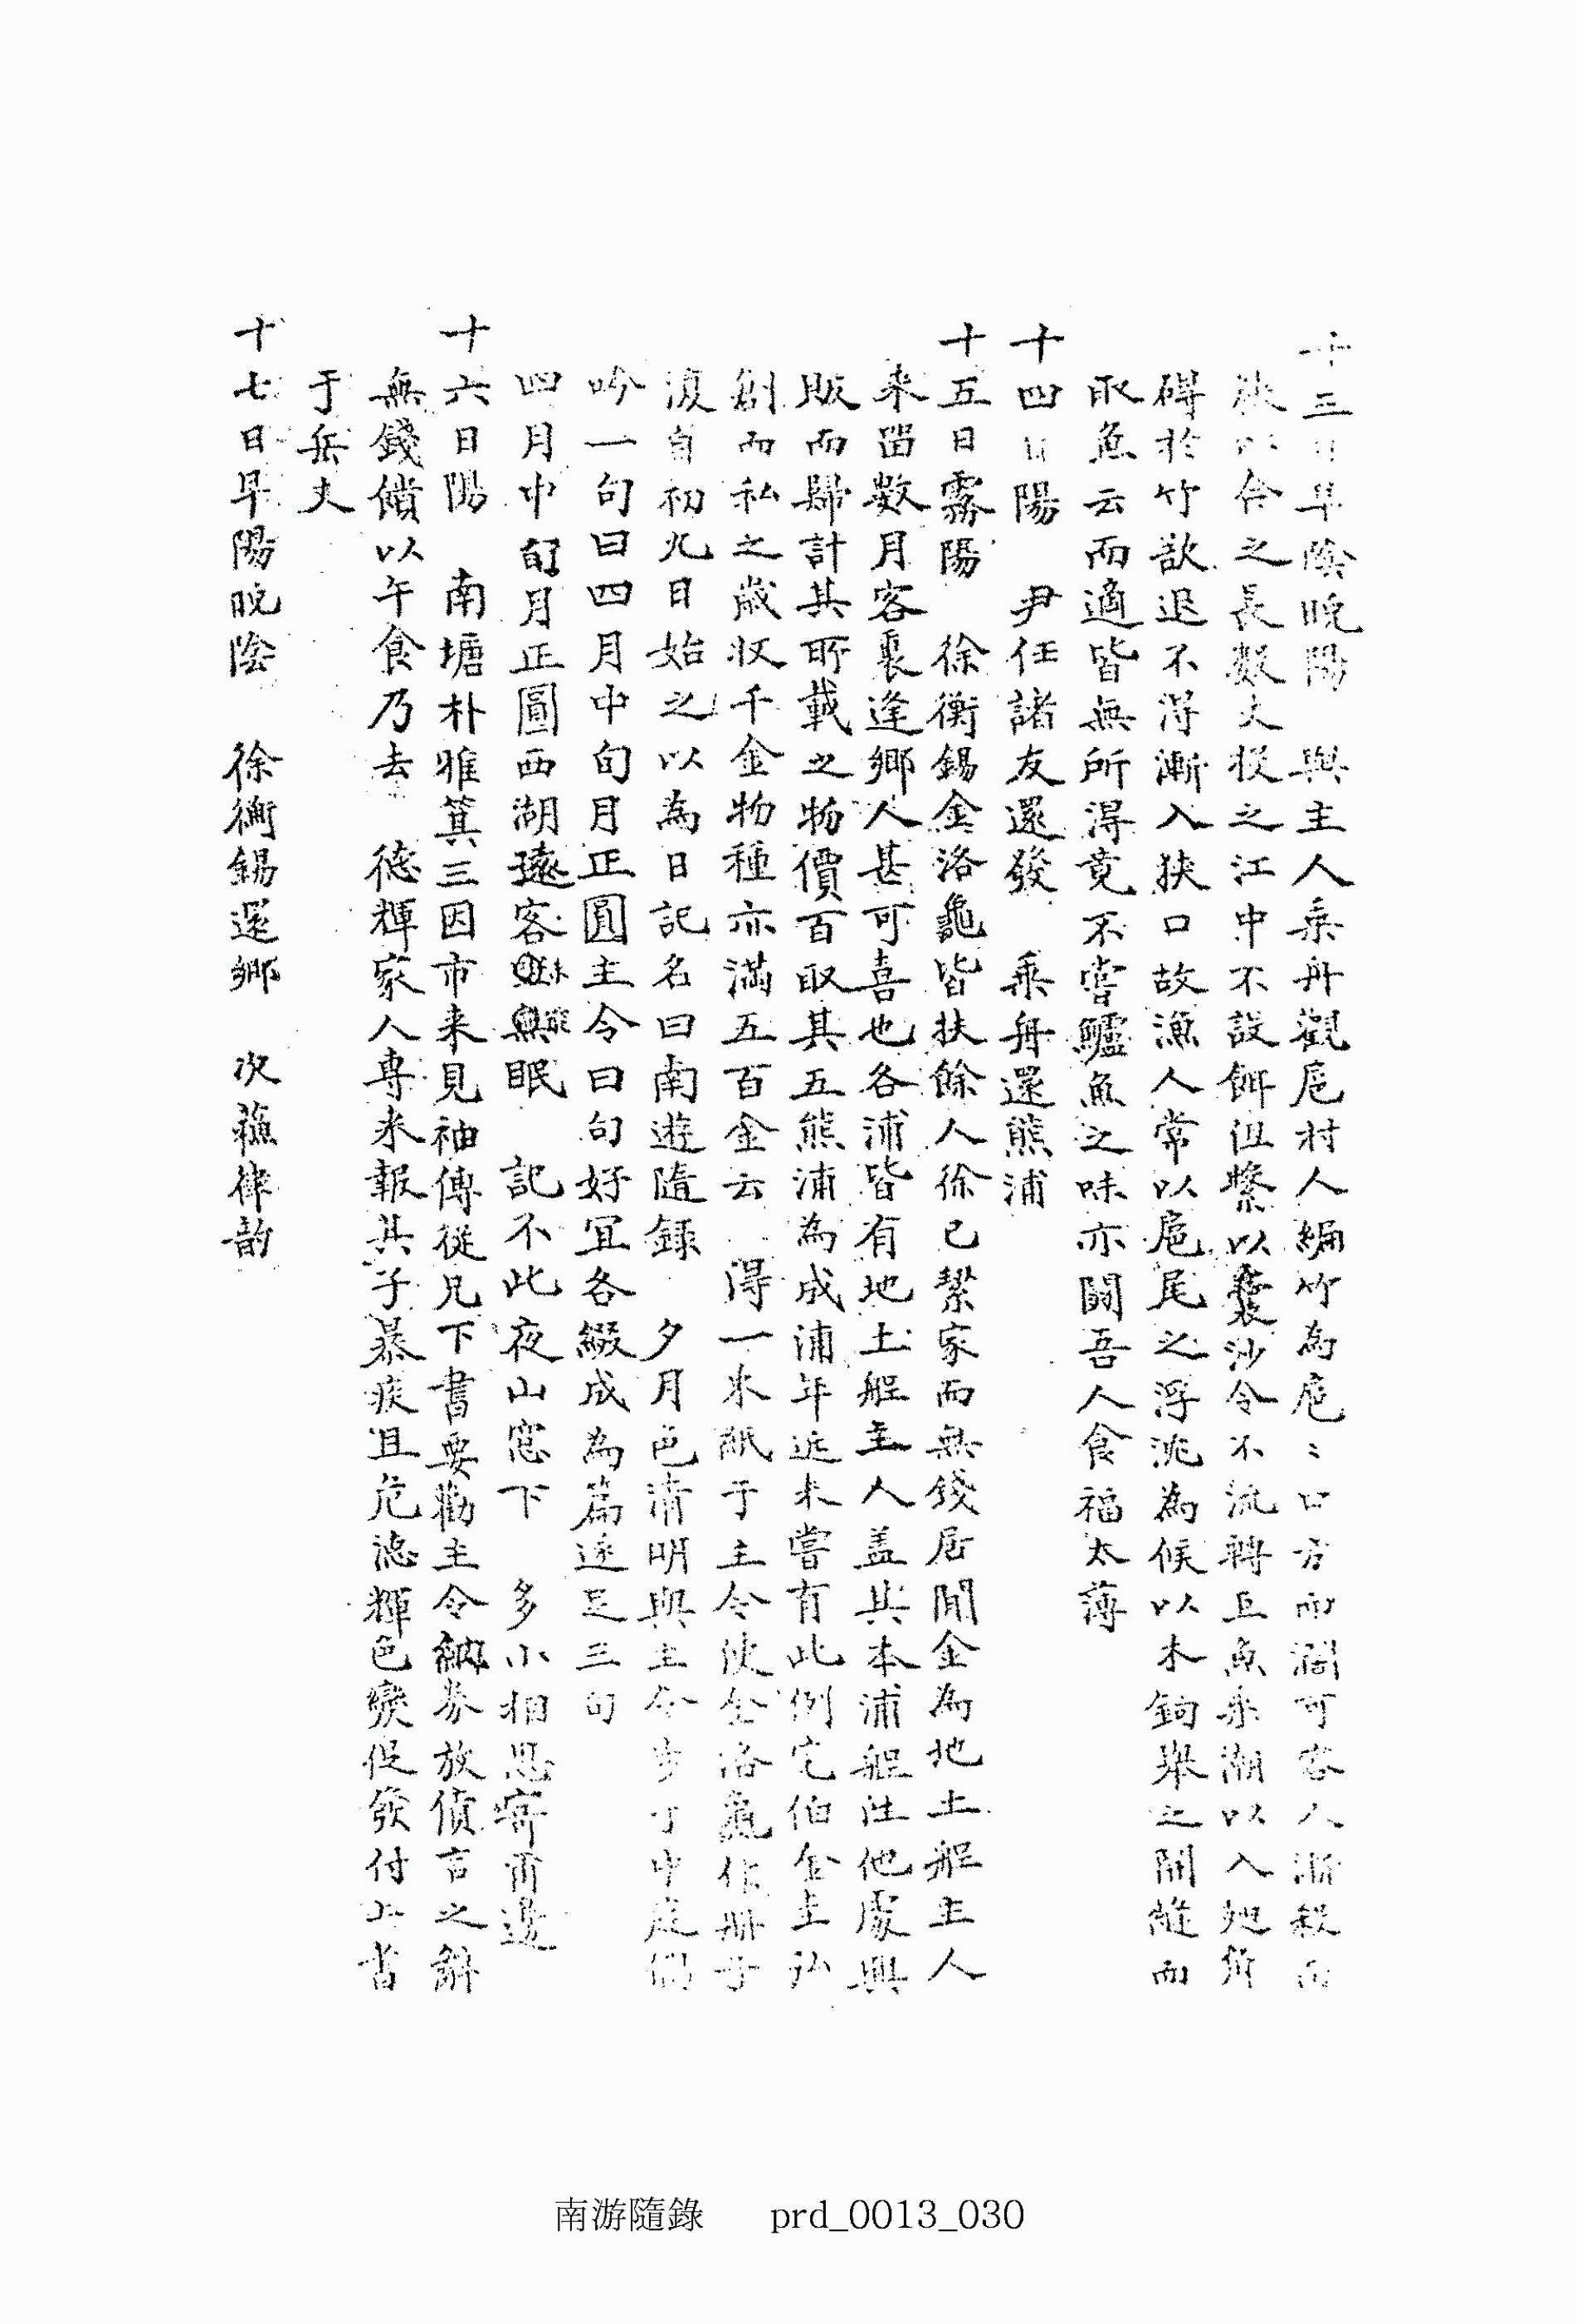 十三日早陰晩陽 與主人乗舟觀扈村人編竹為扈〻口方而濶可容人漸殺而
狹以合之長數丈投之江中不設餌但繫以囊沙令不流轉且魚乗潮以入地角
碍於竹欲退不得漸入狹口故漁人常以扈尾之浮沈為候以木鉤舉之開縫而
取魚云而適皆無所得竟不嘗鱸魚之味亦關吾人食福太薄
十四日陽 尹任諸友還發 乗舟還熊浦
十五日霧陽 徐衡錫金洛龜皆扶餘人徐已挈家而無錢居間金為地土舡主人
来留數月客裏逢鄉人甚可喜也各浦皆有地土舡主人盖其本浦舡往他處興
販而歸計其所載之物價百取其五熊浦為成浦年近未嘗有此例宅伯金主弘
創而私之歲収千金物種亦滿五百金云 得一束紙于主令使金洛龜作冊子
復自初九日始之以為日記名曰南遊隨録 夕月色清明與主令步于中庭偶
吟一句曰四月中旬月正圓主令曰句好冝各綴成為篇遂足三句
四月中旬月正圓西湖遠客無眠 記不此夜山窓下 多小相思寄雨邊
十六日陽 南塘朴雅箕三因市来見袖傳從兄下書要勸主令納券放債言之辭
無錢償以午食乃去 德輝家人專来報其子暴疾且危德輝色變促發付上書
于岳丈
十七日早陽晩陰 徐衡錫還鄉 次蘓律韵
南游隨錄 prd_0013_030